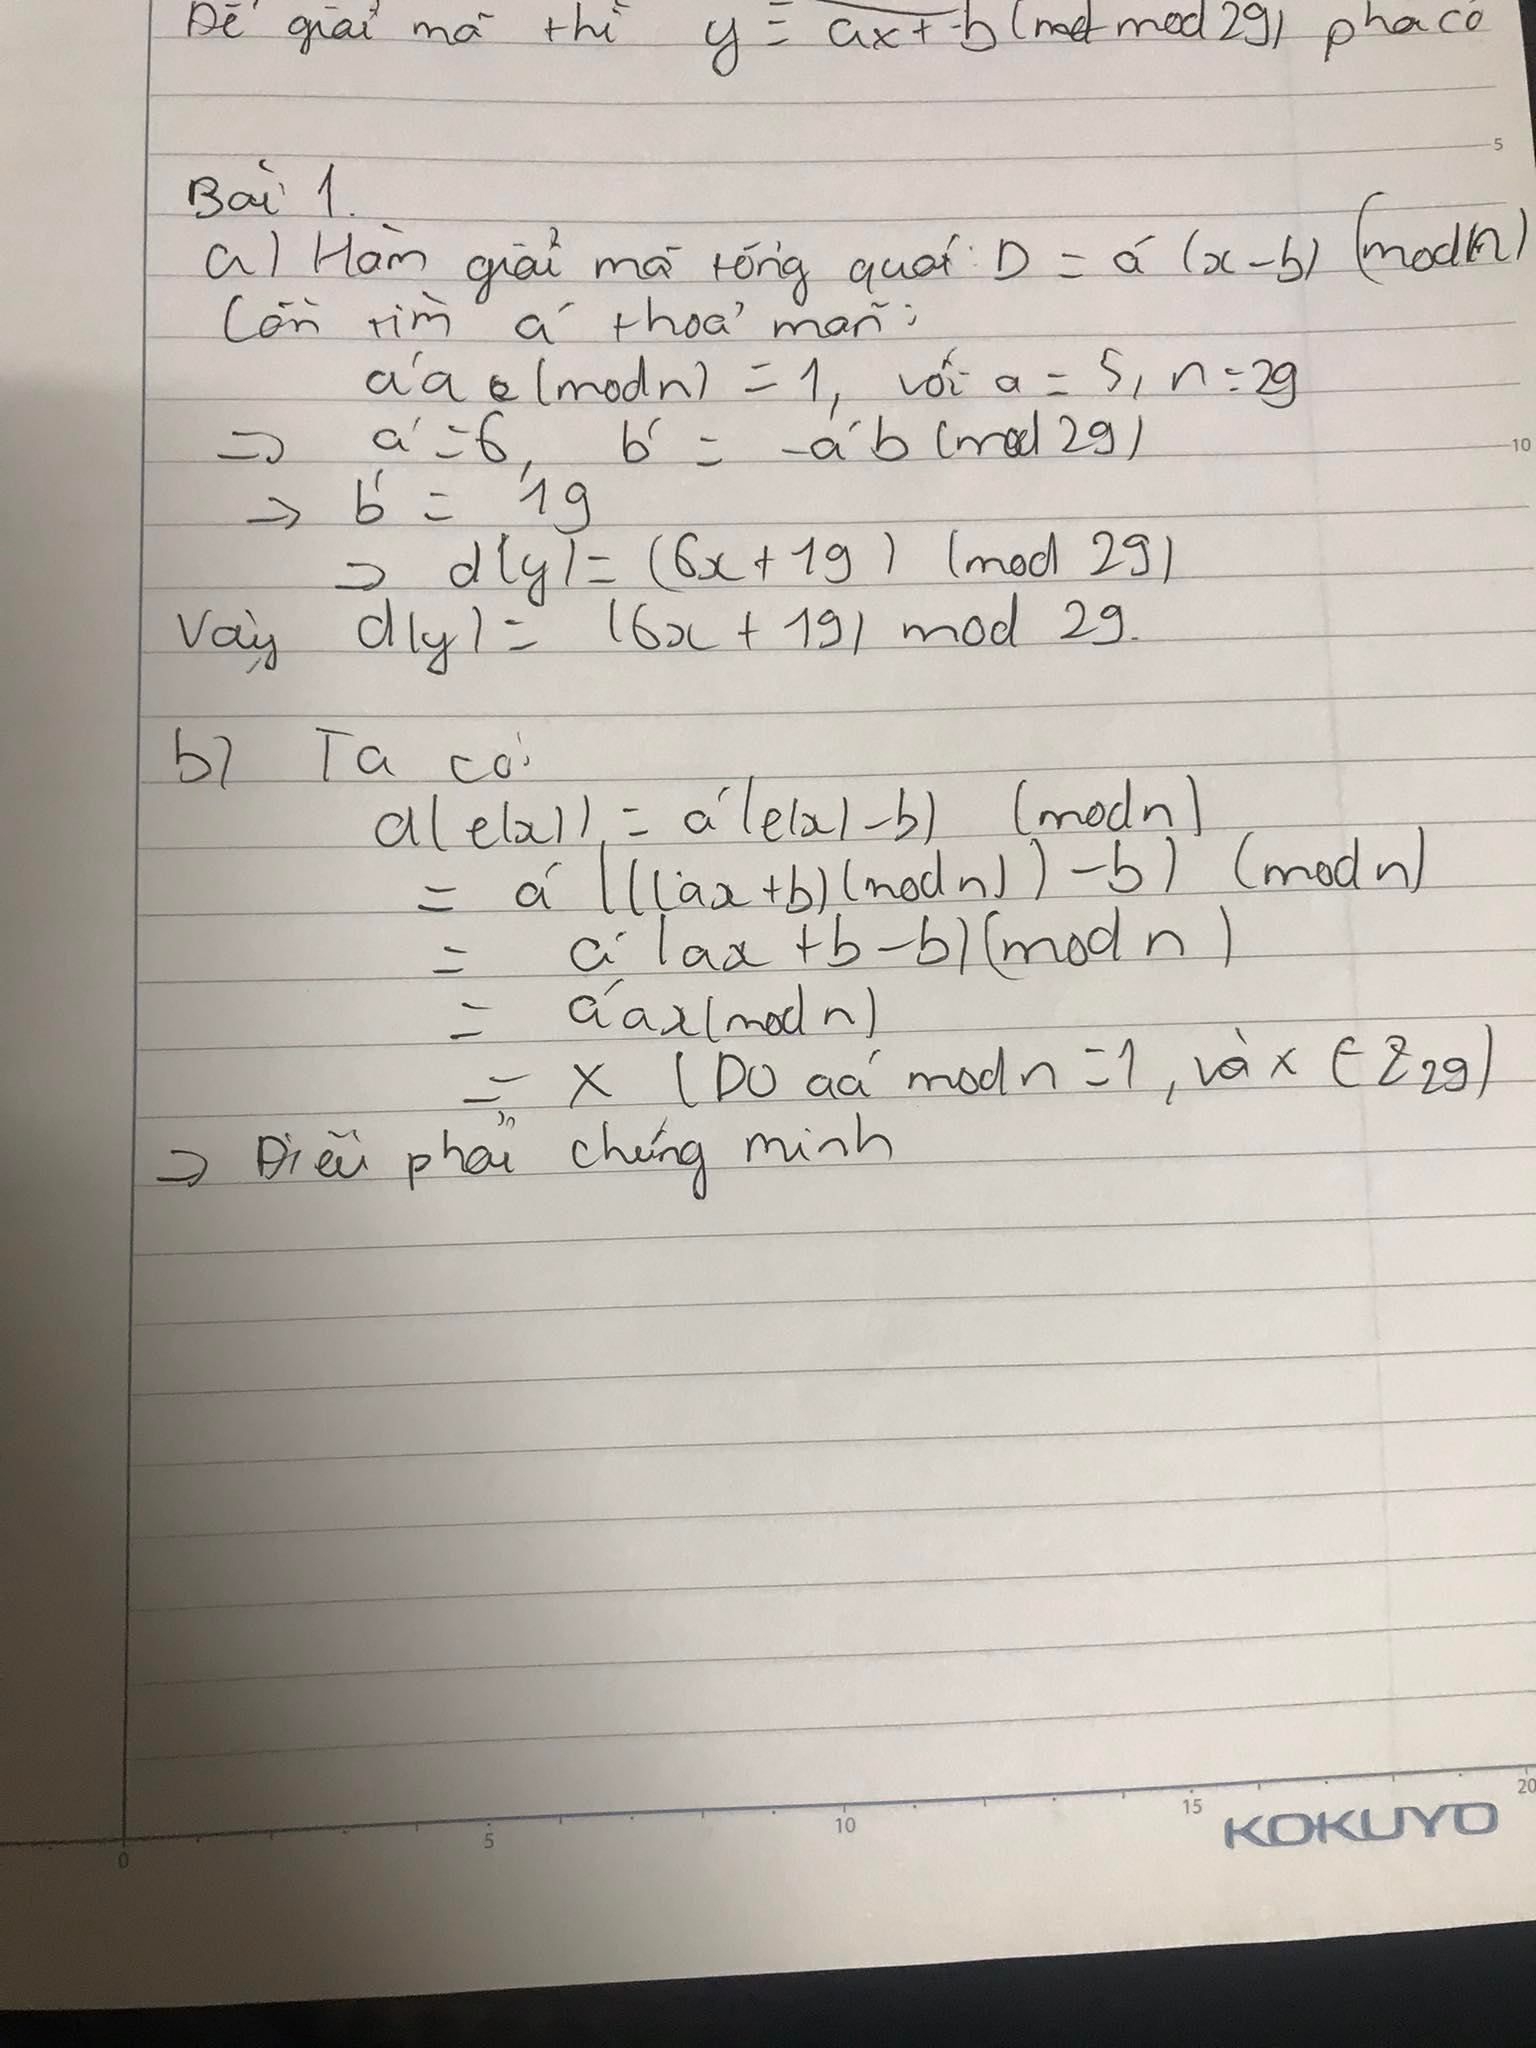 Để giải mã thì y ≡ ax + b (mod mod 29) phải có
5
Bài 1.
a) Hàm giải mã tổng quát: D = a' (x - b) (mod n)
Cần tìm a' thoả mãn:
a'a (mod n) = 1, với a = 5, n = 29
⇒ a' = 6, b' = -a'b (mod 29)
10
⇒ b' = 19
⇒ d(y) = (6x + 19) (mod 29)
Vậy d(y) = (6x + 19) mod 29.
b) Ta có:
d(e(x)) = a'(e(x) - b) (mod n)
= a' (((ax + b) (mod n)) - b) (mod n)
= a' (ax + b - b) (mod n)
= a'ax (mod n)
= x (Do aa' mod n = 1, và x ∈ Z29)
⇒ Điều phải chứng minh
0 5 10 15 20
KOKUYO